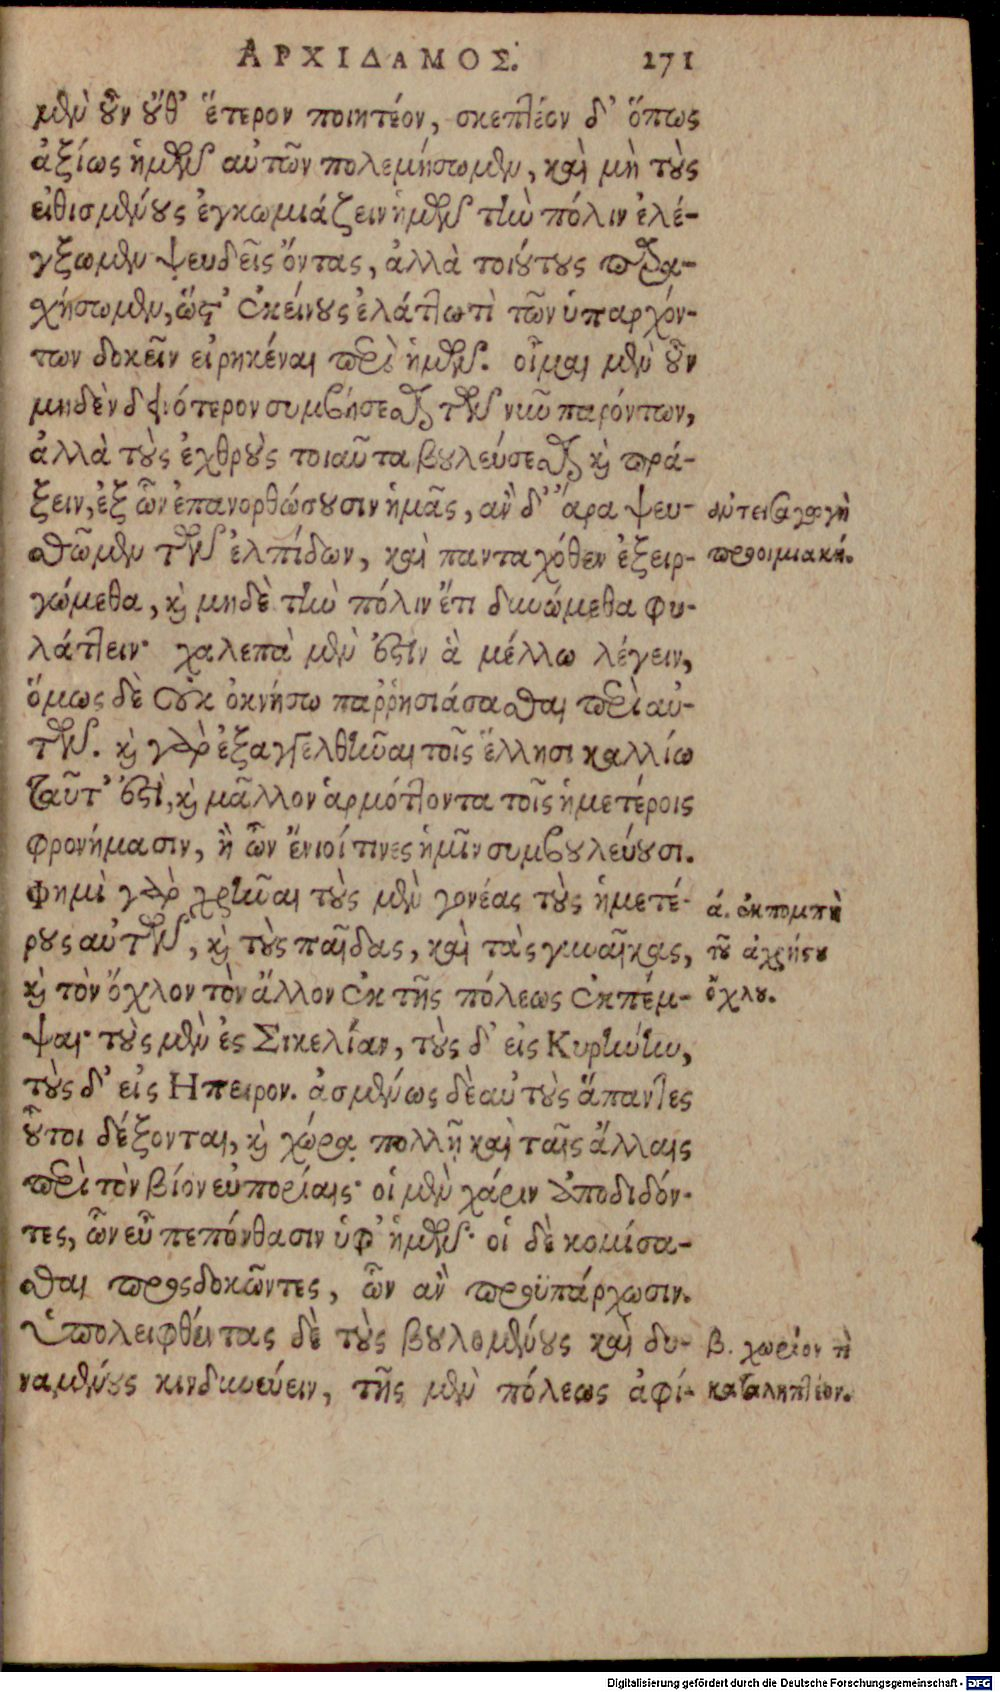 ΑΡΧΙΔΑΜΟΣ. 271
μὲν οὖν οὐθ' ἕτερον ποιητέον, σκεπτέον δ' ὅπως
ἀξίως ἡμῶν αὐτῶν πολεμήσωμεν, καὶ μὴ τοὺς
εἰθισμένους ἐγκωμιάζειν ἡμῶν τὴν πόλιν ἐλέ-
γξωμεν ψευδεῖς ὄντας, ἀλλὰ τοιούτους παρα-
χήσωμεν, ὥστ' ἐκείνους ἐλάττω τὶ τῶν ὑπαρχόν-
των δοκεῖν εἰρηκέναι περὶ ἡμῶν. οἶμαι μὲν οὖν
μηδὲν δεινότερον συμβήσεσθαι τῶν νῦν παρόντων,
ἀλλὰ τοὺς ἐχθροὺς τοιαῦτα βουλεύσεσθαι καὶ πρά-
ξειν, ἐξ ὧν ἐπανορθώσουσιν ἡμᾶς, ἂν δ' ἄρα ψευ-
σθῶμεν τῶν ἐλπίδων, καὶ πανταχόθεν ἐξειρ-
γώμεθα, καὶ μηδὲ τὴν πόλιν ἔτι δυνώμεθα φυ-
λάττειν· χαλεπὰ μὲν ἐστὶν ἃ μέλλω λέγειν,
ὅμως δὲ οὐκ ὀκνήσω παῤῥησιάσασθαι περὶ αὐ-
τῶν. καὶ γὰρ ἐξαγγελθῆναι τοῖς ἕλλησι καλλίω
ταῦτ' ἐστὶ, καὶ μᾶλλον ἁρμόττοντα τοῖς ἡμετέροις
φρονήμασιν, ἢ ὧν ἔνιοί τινες ἡμῖν συμβουλεύουσι.
Φημὶ γὰρ χρῆναι τοὺς μὲν γονέας τοὺς ἡμετέ-
ρους αὐτῶν, καὶ τοὺς παῖδας, καὶ τὰς γυναῖκας,
καὶ τὸν ὄχλον τὸν ἄλλον ἐκ τῆς πόλεως ἐκπέμ-
ψαι· τοὺς μὲν ἐς Σικελίαν, τοὺς δ' εἰς Κυρήνην,
τοὺς δ' εἰς Ηπειρον. ἀσμένως δὲ αὐτοὺς ἅπαντες
οὗτοι δέξονται, καὶ χώρᾳ πολλῇ καὶ ταῖς ἄλλαις
περὶ τὸν βίον εὐπορίαις· οἱ μὲν χάριν ἀποδιδόν-
τες, ὧν εὖ πεπόνθασιν ὑφ' ἡμῶν· οἱ δὲ κομίσα-
σθαι προσδοκῶντες, ὧν ἂν προϋπάρχωσιν.
Ὑπολειφθέντας δὲ τοὺς βουλομένους καὶ δυ-
ναμένους κινδυνεύειν, τῆς μὲν πόλεως ἀφί-
αὐτεισαγωγὴ
προοιμιακή.
ά. ἐκπομπὴ
τοῦ ἀχρήστου
ὄχλου.
β. χωρίον τὶ
καταληπτέον.
Digitalisierung gefördert durch die Deutsche Forschungsgemeinschaft - DFG